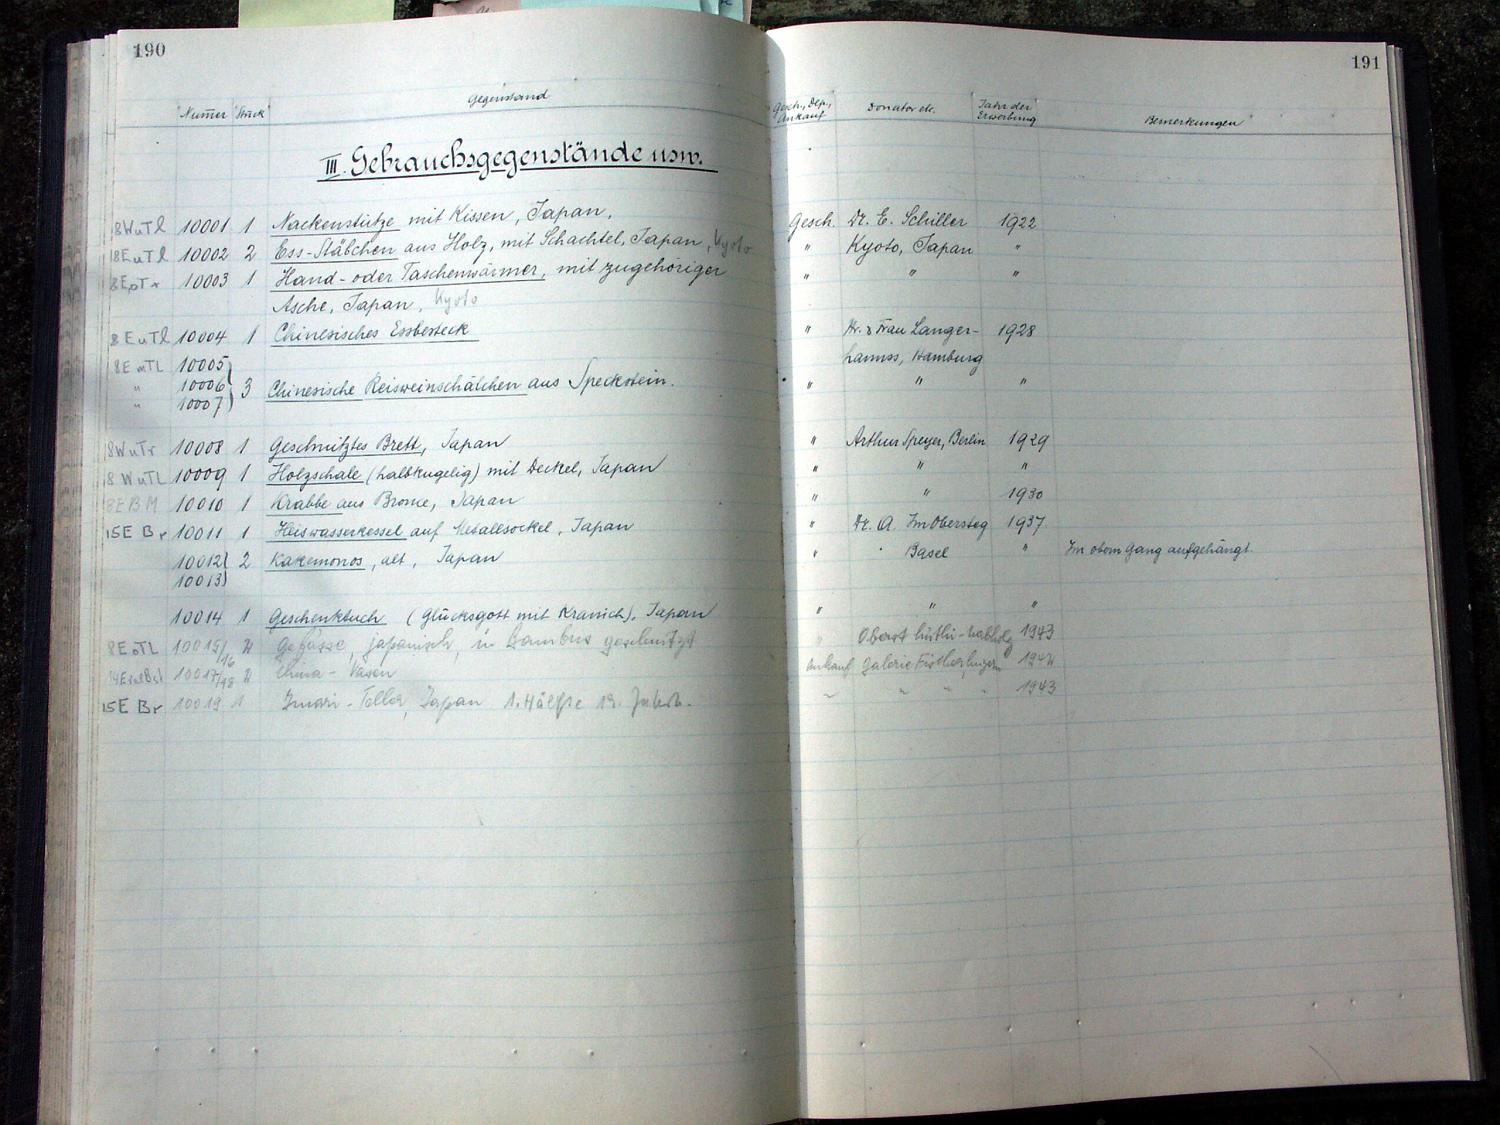 190
191
Nummer Stück Gegenstand Gesch., Dep., Ankauf Donator etc. Jahr der Erwerbung Bemerkungen
III. Gebrauchsgegenstände usw.
8WuTl 10001 1 Nackenstütze mit Kissen, Japan. Gesch. Dr. E. Schiller 1922
8EuTl 10002 2 Ess-Stäbchen aus Holz, mit Schachtel, Japan, Kyoto " Kyoto, Japan "
10003 1 Hand- oder Taschenwärmer, mit zugehöriger " " "
Asche, Japan, Kyoto
8EuTl 10004 1 Chinesisches Essbesteck " Hr. & Frau Langer- 1928
8EmTL 10005 hannss, Hamburg
" 10006 3 Chinesische Reisweinschälchen aus Speckstein. " " "
" 10007
8WuTr 10008 1 Geschnitztes Brett, Japan " Arthur Speyer, Berlin 1929
8WuTL 10009 1 Holzschale (halbkugelig) mit Deckel, Japan " " "
8EBM 10010 1 Krabbe aus Bronce, Japan " " 1930
15E Br 10011 1 Heiswasserkessel auf Metallsockel, Japan " Dr. A. Im Obersteg 1937
10012 2 Kakemonos, alt, Japan " Basel " Im obern Gang aufgehängt.
10013
10014 1 Geschenktuch (Glücksgott mit Kranich), Japan " " "
8EoTL 10015/16 2 Gefässe, japanisch, in Bambus geschnitzt " Oberst 1943
10017/18 2 China-Vasen Ankauf Galerie Fischer, Luzern 1942
15E Br 10019 1 Imari-Teller, Japan 1. Hälfte 19. Jahrh. " " " " 1943